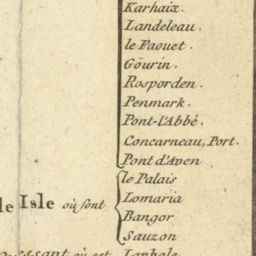 Karhaix.
Landeleau.
le Faouet.
Gourin.
Rosporden.
Penmark.
Pont-l'Abbé.
Concarneau, Port.
Pont d'Aven
le Palais
Lomaria
le Isle où sont
Bangor
Sauzon
où est